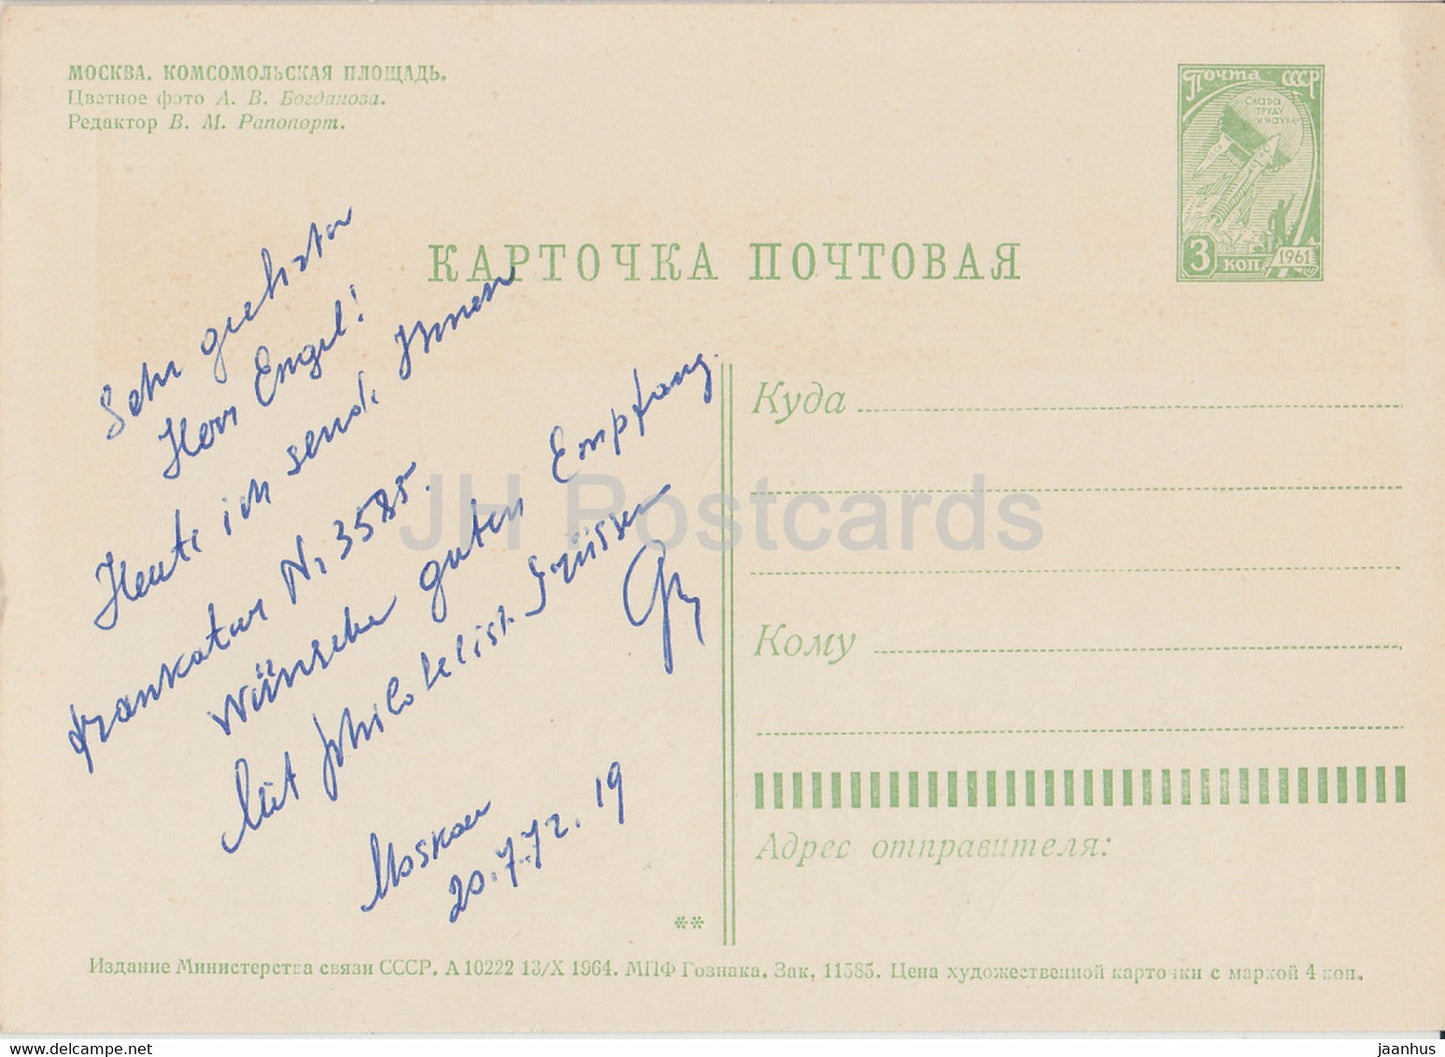 МОСКВА. КОМСОМОЛЬСКАЯ ПЛОЩАДЬ.
Цветное фото А. В. Богданова.
Редактор В. М. Рапопорт.
Почта СССР
СЛАВА
ТРУДУ
И НАУКЕ
3 КОП 1961
КАРТОЧКА ПОЧТОВАЯ
Sehr geehrter
Herr Engel!
Heute ich sende Ihnen
frankatur Nr 3585.
Wünsche guten Empfang.
Mit philatelist. Grüssen
Moskau
20.7.72. 19
Куда
Кому
Адрес отправителя:
**
Издание Министерства связи СССР. А 10222 13/X 1964. МПФ Гознака. Зак. 11585. Цена художественной карточки с маркой 4 коп.
JH Postcards
www.delcampe.net
jaanhus